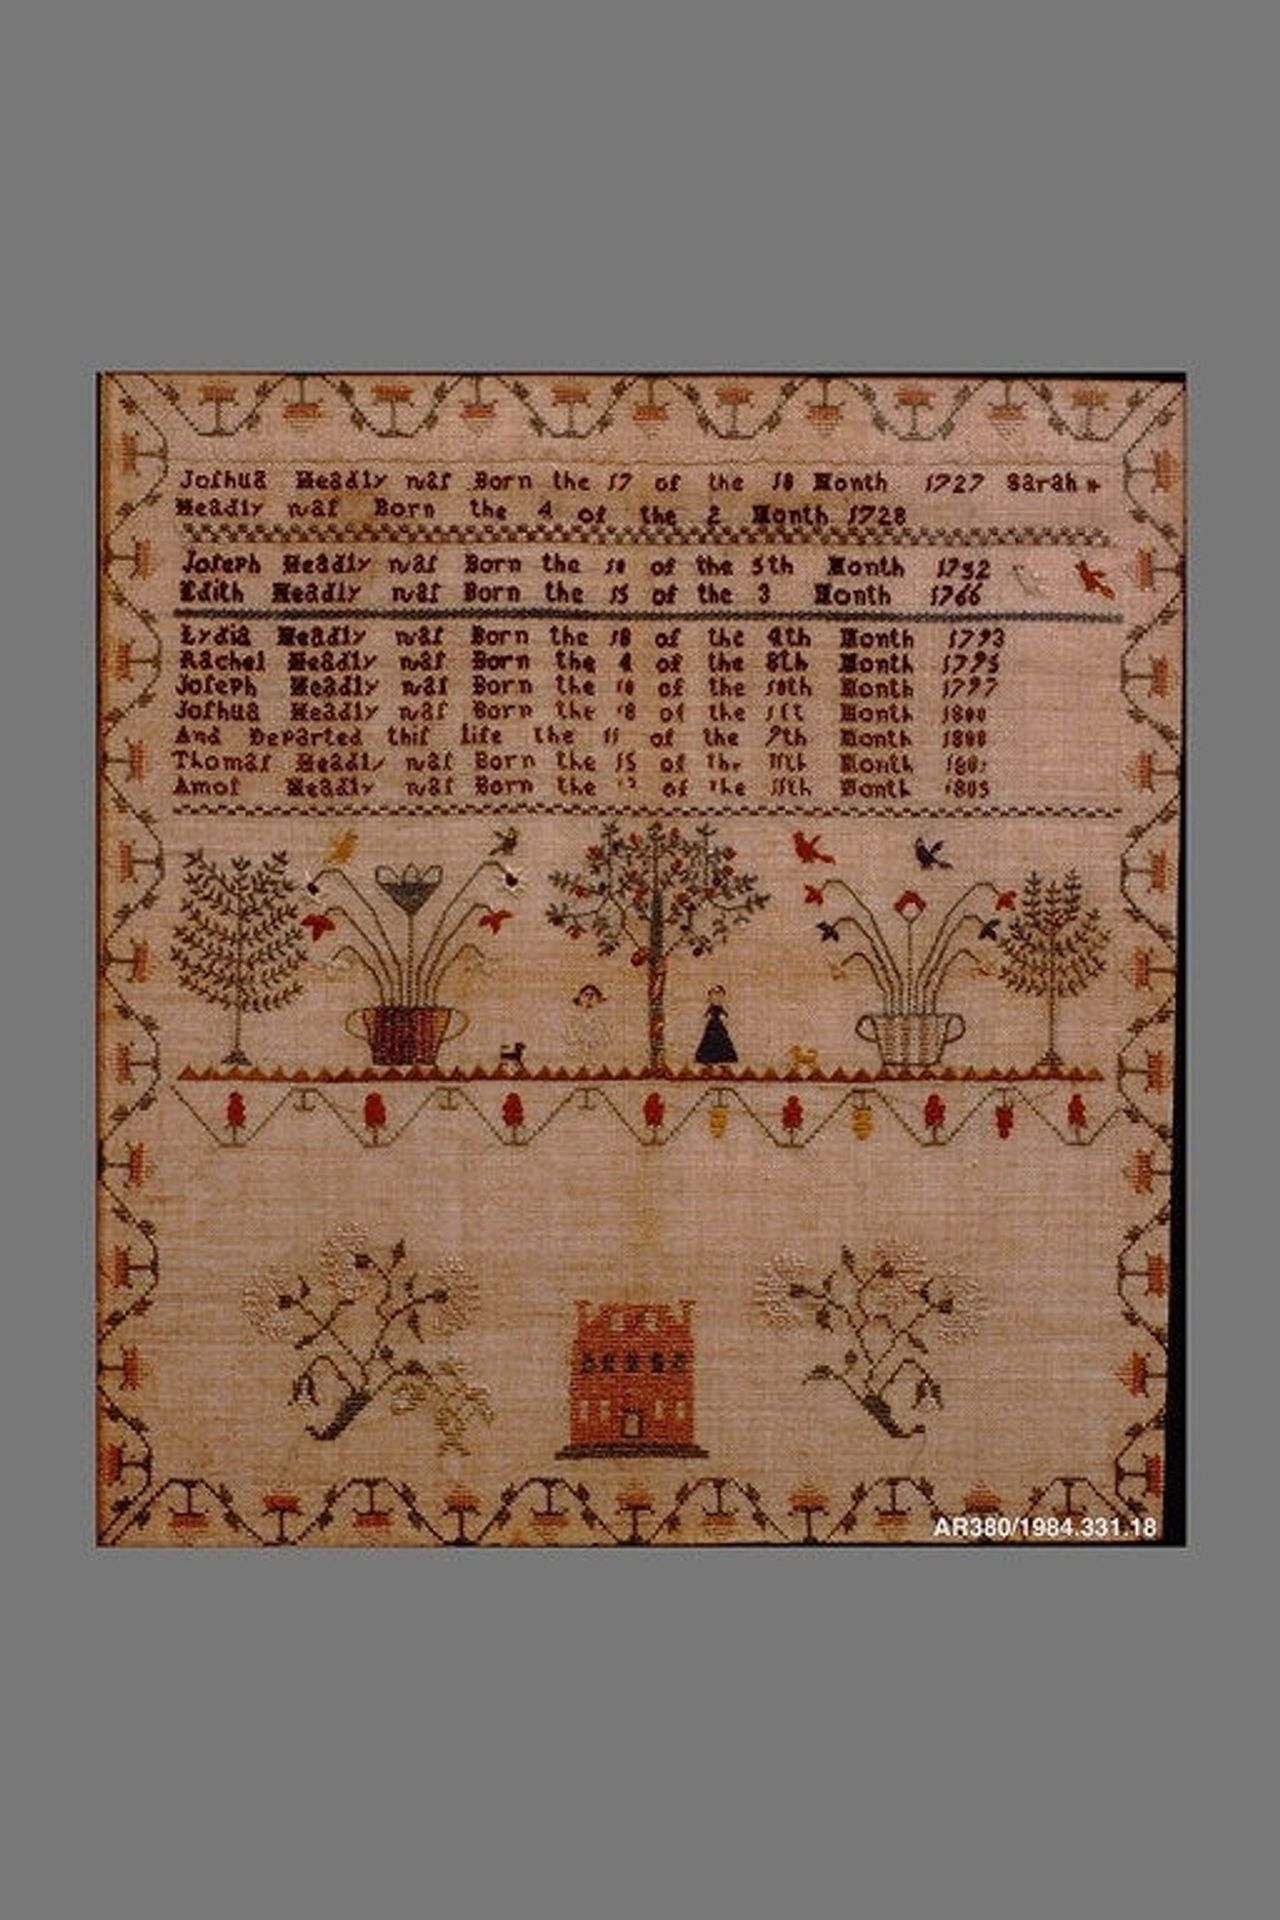 Joſhua Headly waſ Born the 17 of the 10 Month 1727 Sarah
Headly waſ Born the 4 of the 2 Month 1728
Joſeph Headly waſ Born the 10 of the 5th Month 1752
Edith Headly waſ Born the 15 of the 3 Month 1766
Lydia Headly waſ Born the 10 of the 4th Month 1793
Rachel Headly waſ Born the 4 of the 8th Month 1795
Joſeph Headly waſ Born the 10 of the 10th Month 1797
Joſhua Headly waſ Born the 18 of the 1ſt Month 1800
And Departed thiſ life the 11 of the 9th Month 1800
Thomaſ Headly waſ Born the 15 of the 11th Month
Amoſ Headly waſ Born the of the 11th Month 1805
AR380/1984.331.18